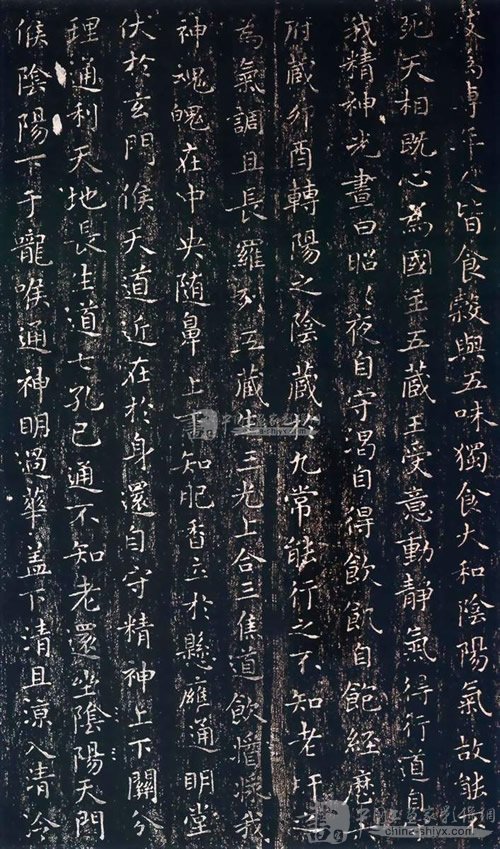 為專年人皆食穀與五味獨食大和陰陽氣故能不
死天相既心為國主五藏王受意動靜氣得行道自守
我精神光晝日昭〻夜自守渴自得飲飢自飽經歷六
府藏卯酉轉陽之陰藏於九常能行之不知老肝之
為氣調且長羅列五藏生三光上合三焦道飲醬漿我
神魂魄在中央随鼻上下知肥香立於懸膺通明堂
伏於玄門候天道近在於身還自守精神上下關分
理通利天地長生道七孔已通不知老還坐陰陽天門
候陰陽下于嚨喉通神明過華蓋下清且涼入清泠
china-shiyx.com